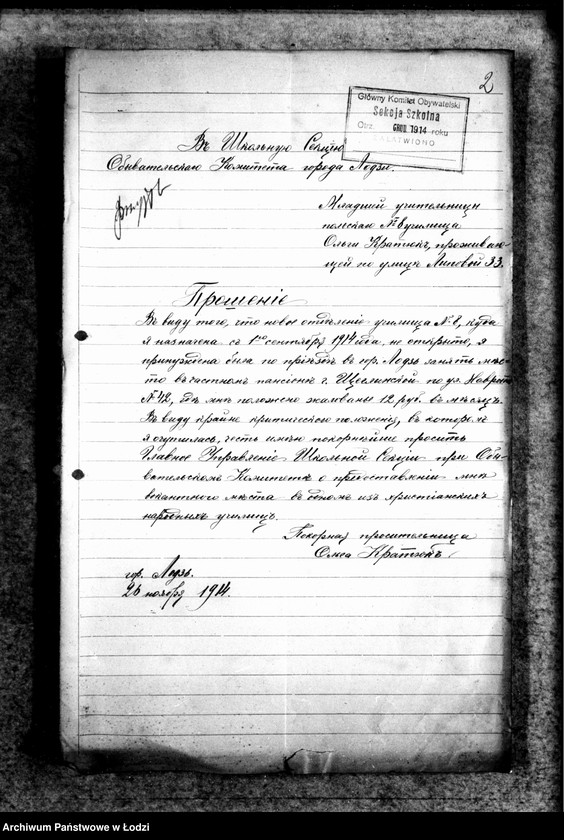 2
Główny Komitet Obywatelski
Sekcja Szkolna
Otrz. GRUD. 1914 roku
ZAŁATWIONO
Въ Школьную Секцію
Обывательскаго Комитета города Лодзи.
Младшей учительницы
польскаго № 8 училища
Ольги Кратюкъ, проживаю-
щей по улицѣ Липовой 33.
Прошеніе
Въ виду того, что новое отдѣленіе училища № 8, куда
я назначена съ 1го сентября 1914 года, не открыто, я
принуждена была по пріѣздѣ въ гор. Лодзь занять мѣс-
то въ частномъ пансіонѣ г. по ул. Навротъ
№ 42, гдѣ мнѣ положено жалованья 12 руб. въ мѣсяцъ.
Въ виду крайне критическаго положенія, въ которомъ
я очутилась, честь имѣю покорнѣйше просить
Главное Управленіе Школьной Секціи при Обы-
вательскомъ Комитетѣ о предоставленіи мнѣ
вакантнаго мѣста въ одномъ изъ христіанскихъ
народныхъ училищъ.
Покорная просительница
Ольга Кратюкъ
гор. Лодзь.
26 ноября 1914.
Archiwum Państwowe w Łodzi